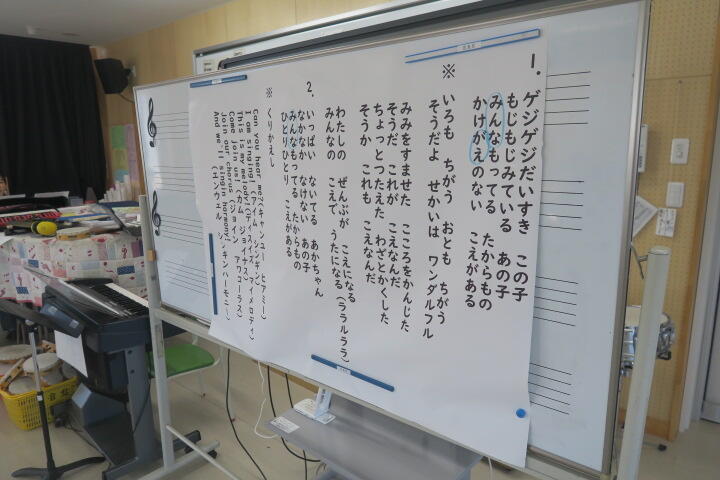 1. ゲジゲジだいすき この子
もじもじみている あの子
みんなもってる たからもの
かけがえのない こえがある
※ いろも ちがう おとも ちがう
そうだよ せかいは ワンダルフル
みみをすませた こころをかんじた
そうだ これが こえなんだ
ちょっとつたえた わざとかくした
そうか これも こえなんだ
わたしの ぜんぶが こえになる
みんなの こえで うたになる(ラララルララ)
2. いっぱい ないてる あかちゃん
なかなか なけない あの子
みんなもってる たからもの
ひとりひとり こえがある
※ くりかえし
Can you hear me?(キャンユー ヒアミー)
I am singing (アイム シンギン)
This is my melody(ディスイズ マイメロディ)
Come join us! (カム ジョイナス)
Join our chorus (ジョイン アワコーラス)
And we'll singin harmony!